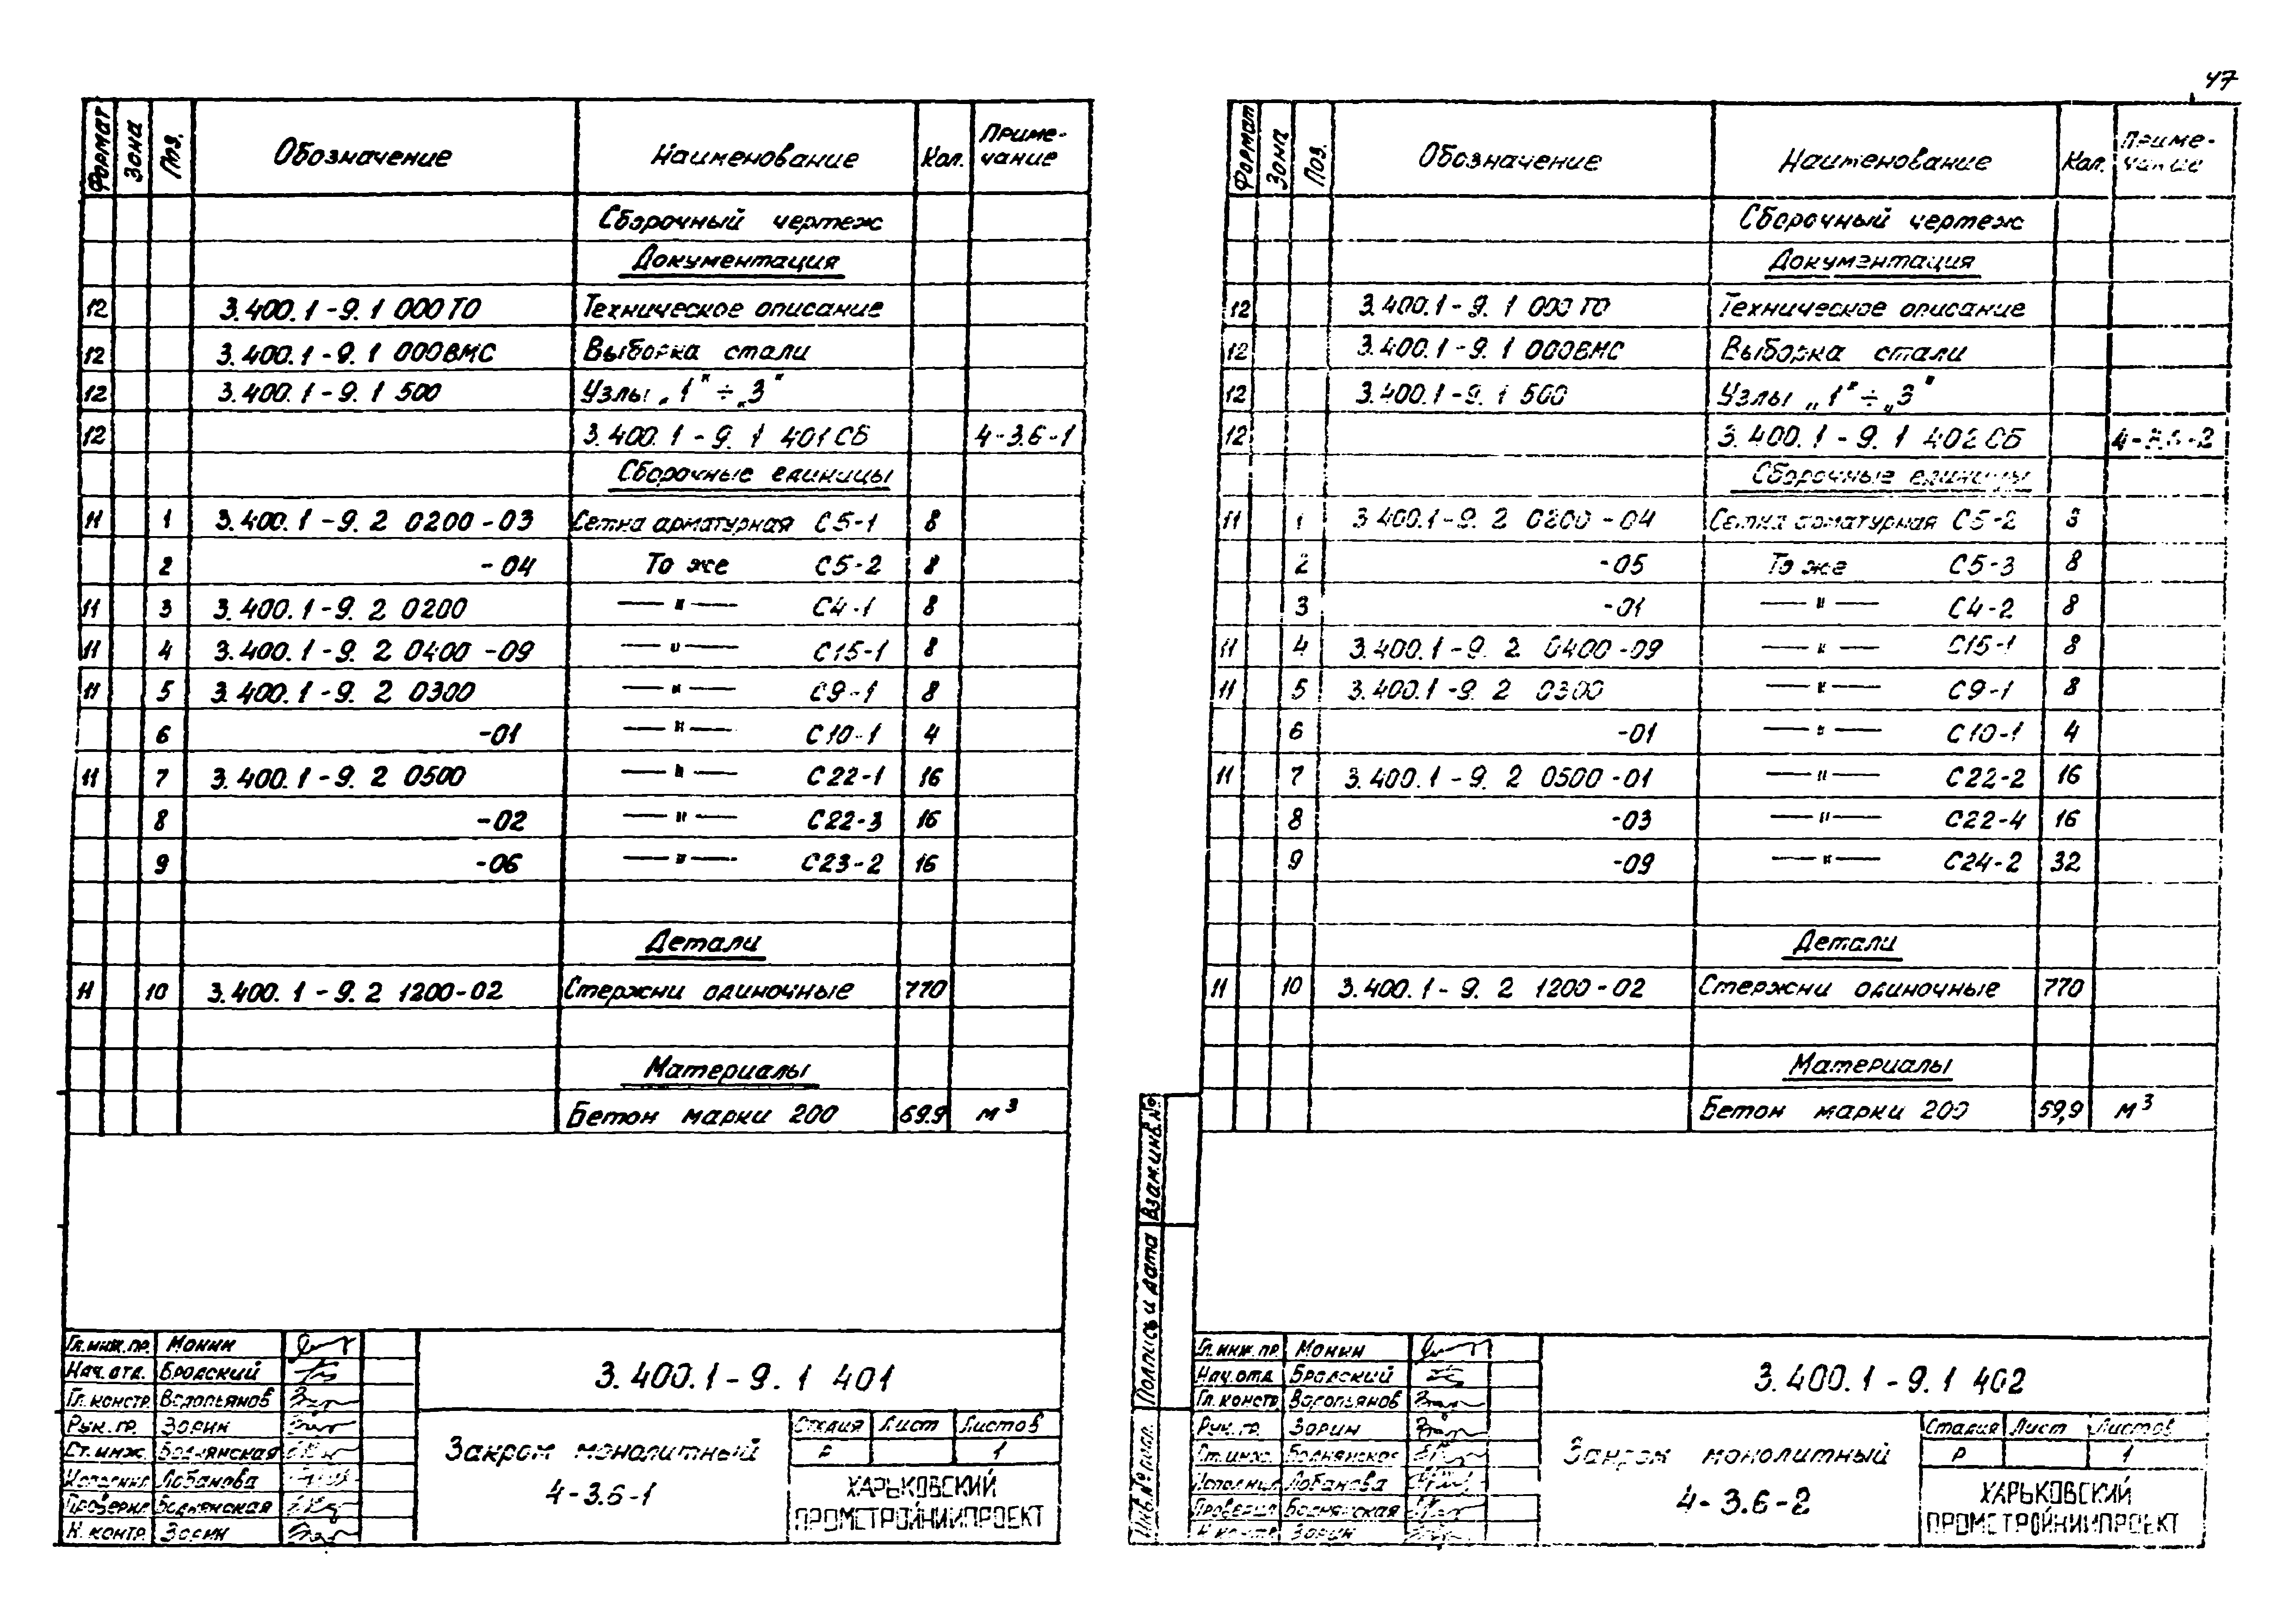 47
Формат Зона Поз. Обозначение Наименование Кол. Приме-чание
Сборочный чертеж
Документация
12 3.400.1-9.1 000ТО Техническое описание
12 3.400.1-9.1 000ВМС Выборка стали
12 3.400.1-9.1 500 Узлы „1"÷„3"
12 3.400.1-9.1 401СБ 4-3.6-1
Сборочные единицы
11 1 3.400.1-9.2 0200-03 Сетка арматурная С5-1 8
2 -04 То же С5-2 8
11 3 3.400.1-9.2 0200 —"— С4-1 8
11 4 3.400.1-9.2 0400-09 —"— С15-1 8
11 5 3.400.1-9.2 0300 —"— С9-1 8
6 -01 —"— С10-1 4
11 7 3.400.1-9.2 0500 —"— С22-1 16
8 -02 —"— С22-3 16
9 -06 —"— С23-2 16
Детали
11 10 3.400.1-9.2 1200-02 Стержни одиночные 770
Материалы
Бетон марки 200 59.9 м³
Гл.инж.пр. Монин
Нач.отд. Бродский
Гл.констр. Водопьянов
Рук.гр. Зорин
Ст.инж. Боднянская
Исполнил Лобанова
Проверил Боднянская
Н.контр. Зорин
3.400.1-9.1 401
Закром монолитный
4-3.6-1
Стадия Лист Листов
Р 1
ХАРЬКОВСКИЙ
ПРОМСТРОЙНИИПРОЕКТ
Формат Зона Поз. Обозначение Наименование Кол. Приме-чание
Сборочный чертеж
Документация
12 3.400.1-9.1 000ТО Техническое описание
12 3.400.1-9.1 000ВМС Выборка стали
12 3.400.1-9.1 500 Узлы „1"÷„3"
12 3.400.1-9.1 402СБ 4-3.6-2
Сборочные единицы
11 1 3.400.1-9.2 0200-04 Сетка арматурная С5-2 8
2 -05 То же С5-3 8
3 -01 —"— С4-2 8
11 4 3.400.1-9.2 0400-09 —"— С15-1 8
11 5 3.400.1-9.2 0300 —"— С9-1 8
6 -01 —"— С10-1 4
11 7 3.400.1-9.2 0500-01 —"— С22-2 16
8 -03 —"— С22-4 16
9 -09 —"— С24-2 32
Детали
11 10 3.400.1-9.2 1200-02 Стержни одиночные 770
Материалы
Бетон марки 200 59,9 м³
Взам.инв.№
Подпись и дата
Инв.№подл.
Гл.инж.пр. Монин
Нач.отд. Бродский
Гл.констр. Водопьянов
Рук.гр. Зорин
Ст.инж. Боднянская
Исполнил Лобанова
Проверил Боднянская
Н.контр. Зорин
3.400.1-9.1 402
Закром монолитный
4-3.6-2
Стадия Лист Листов
Р 1
ХАРЬКОВСКИЙ
ПРОМСТРОЙНИИПРОЕКТ